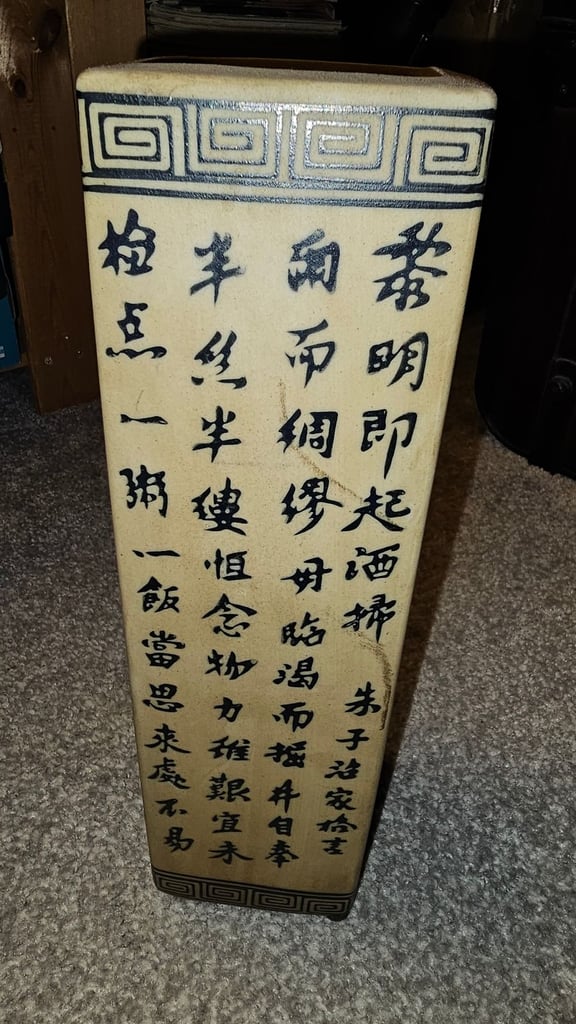 黎明即起洒掃 朱子治家格言
雨而綢繆毋臨渴而掘井自奉
半絲半縷恒念物力維艱宜未
检点一粥一飯當思来處不易